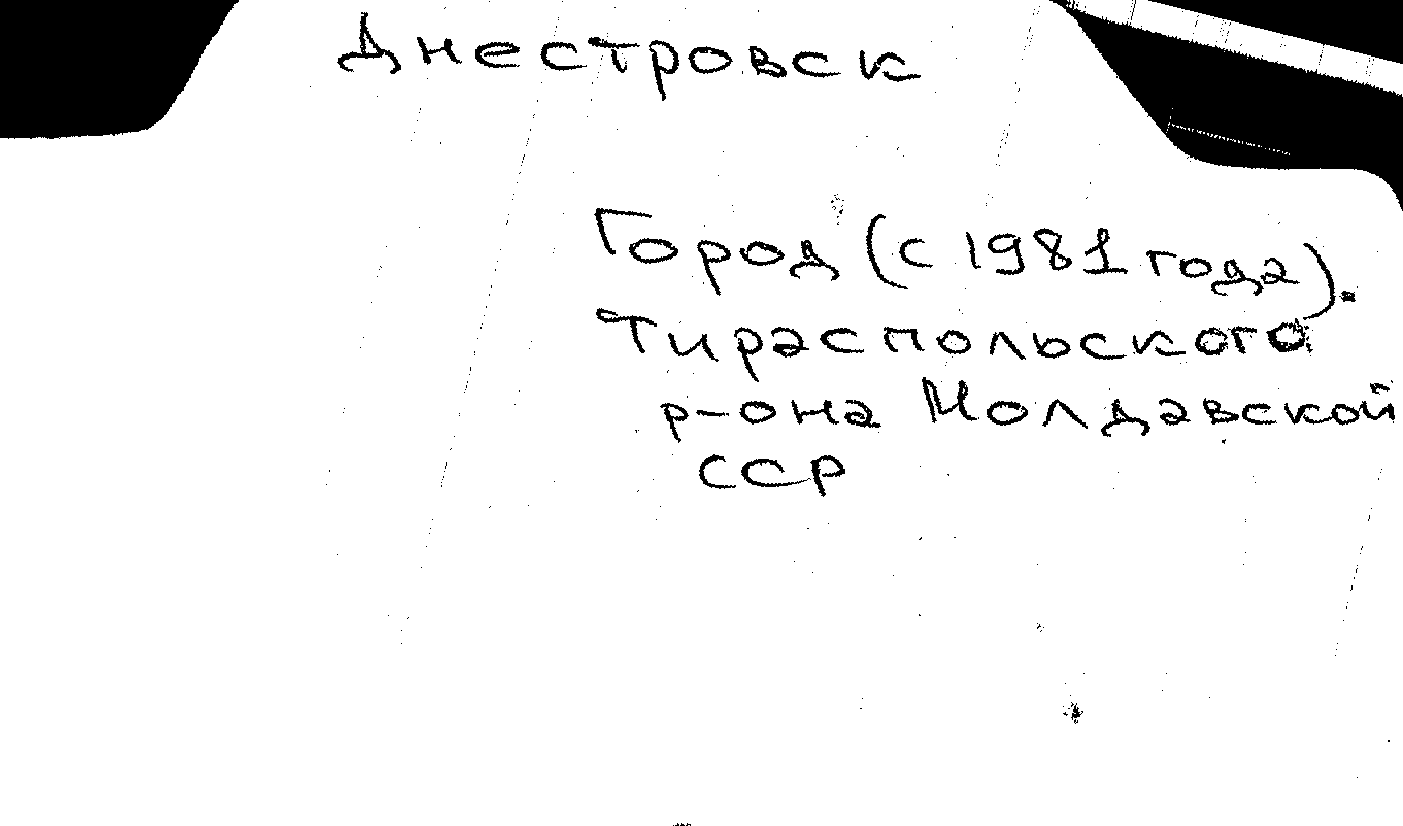 Днестровск
Город (с 1981 года).
Тираспольского
р-она Молдавской
ССР